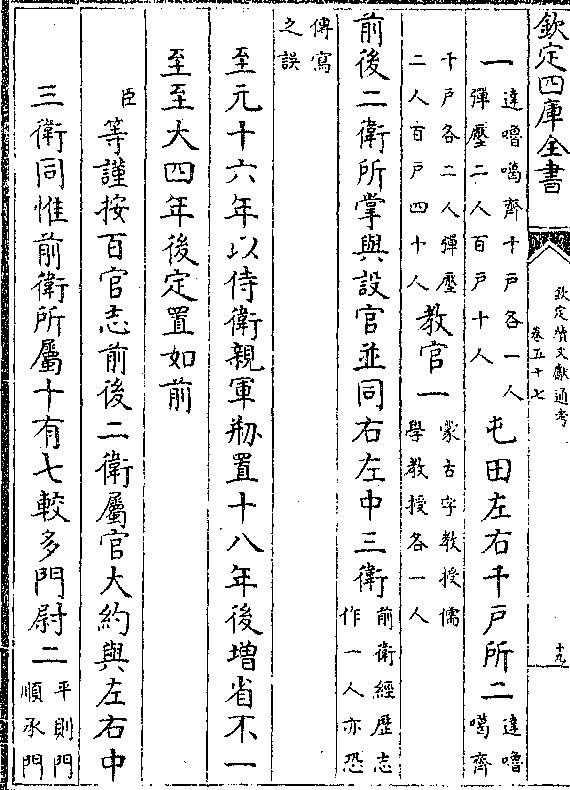 欽定四庫全書
欽定續文獻通考
卷五十七
十九
一達嚕噶齊千戶各一人彈壓二人百戶十人屯田左右千戶所二達嚕噶齊
千戶各二人彈壓二人百戶四十人教官一蒙古字教授儒學教授各一人
前後二衛所掌與設官並同右左中三衛前衛經歷志作一人亦恐
傳寫之誤
至元十六年以侍衛親軍刱置十八年後増省不一
至至大四年後定置如前
臣等謹按百官志前後二衛屬官大約與左右中
三衛同惟前衛所屬十有七較多門尉二平則門順承門